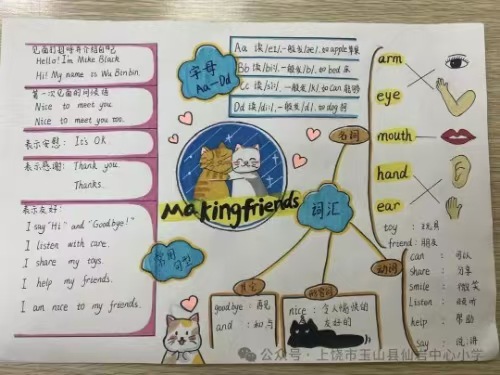 见面打招呼并介绍自己
Hello! I'm Mike Black
Hi! My name is Wu Binbin.
第一次见面的问候语
Nice to meet you
Nice to meet you too.
表示安慰: It's OK
表示感谢: Thank you.
Thanks.
表示友好:
I say "Hi" and "Goodbye!"
I listen with care.
I share my toys.
I help my friends.
I am nice to my friends.
字母
Aa-Dd
Aa 读/eɪ/,一般发/æ/, to apple苹果
Bb 读/biː/,一般发/b/, to bed 床
Cc 读/siː/,一般发/k/, to can 能够
Dd 读/diː/,一般发/d/, to dog 狗
Makingfriends
常用
句型
词汇
名词
arm
eye
mouth
hand
ear
toy : 玩具
friend: 朋友
动词
can : 可以
share : 分享
smile : 微笑
listen : 倾听
help : 帮助
say : 说,讲
其它
goodbye: 再见
and : 和;与
形容词
nice : 令人愉快的
友好的
公众号·上饶市玉山县仙岩中心小学